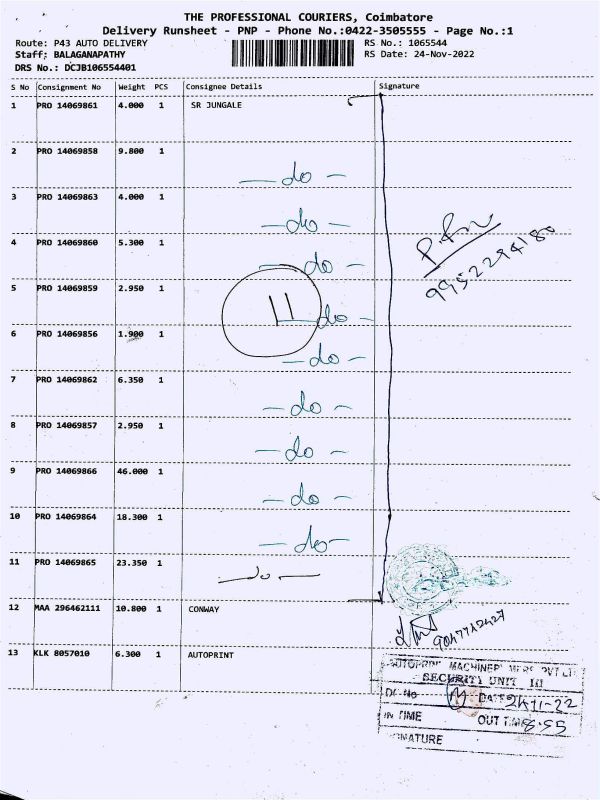 THE PROFESSIONAL COURIERS, Coimbatore
Delivery Runsheet - PNP - Phone No.:0422-3505555 - Page No.:1
Route: P43 AUTO DELIVERY RS No.: 1065544
Staff: BALAGANAPATHY RS Date: 24-Nov-2022
DRS No.: DCJB106554401
S No Consignment No Weight PCS Consignee Details Signature
1 PRO 14069861 4.000 1 SR JUNGALE
2 PRO 14069858 9.800 1
— do —
3 PRO 14069863 4.000 1
— do —
4 PRO 14069860 5.300 1
— do —
5 PRO 14069859 2.950 1
11
— do —
6 PRO 14069856 1.900 1
— do —
7 PRO 14069862 6.350 1
— do —
8 PRO 14069857 2.950 1
— do —
9 PRO 14069866 46.000 1
— do —
10 PRO 14069864 18.300 1
— do —
11 PRO 14069865 23.350 1
— do —
12 MAA 296462111 10.800 1 CONWAY
13 KLK 8057010 6.300 1 AUTOPRINT
AUTOPRINT MACHINERY MFRS PVT LTD
SECURITY UNIT III
DATE 24-11-22
IN TIME OUT TIME
SIGNATURE